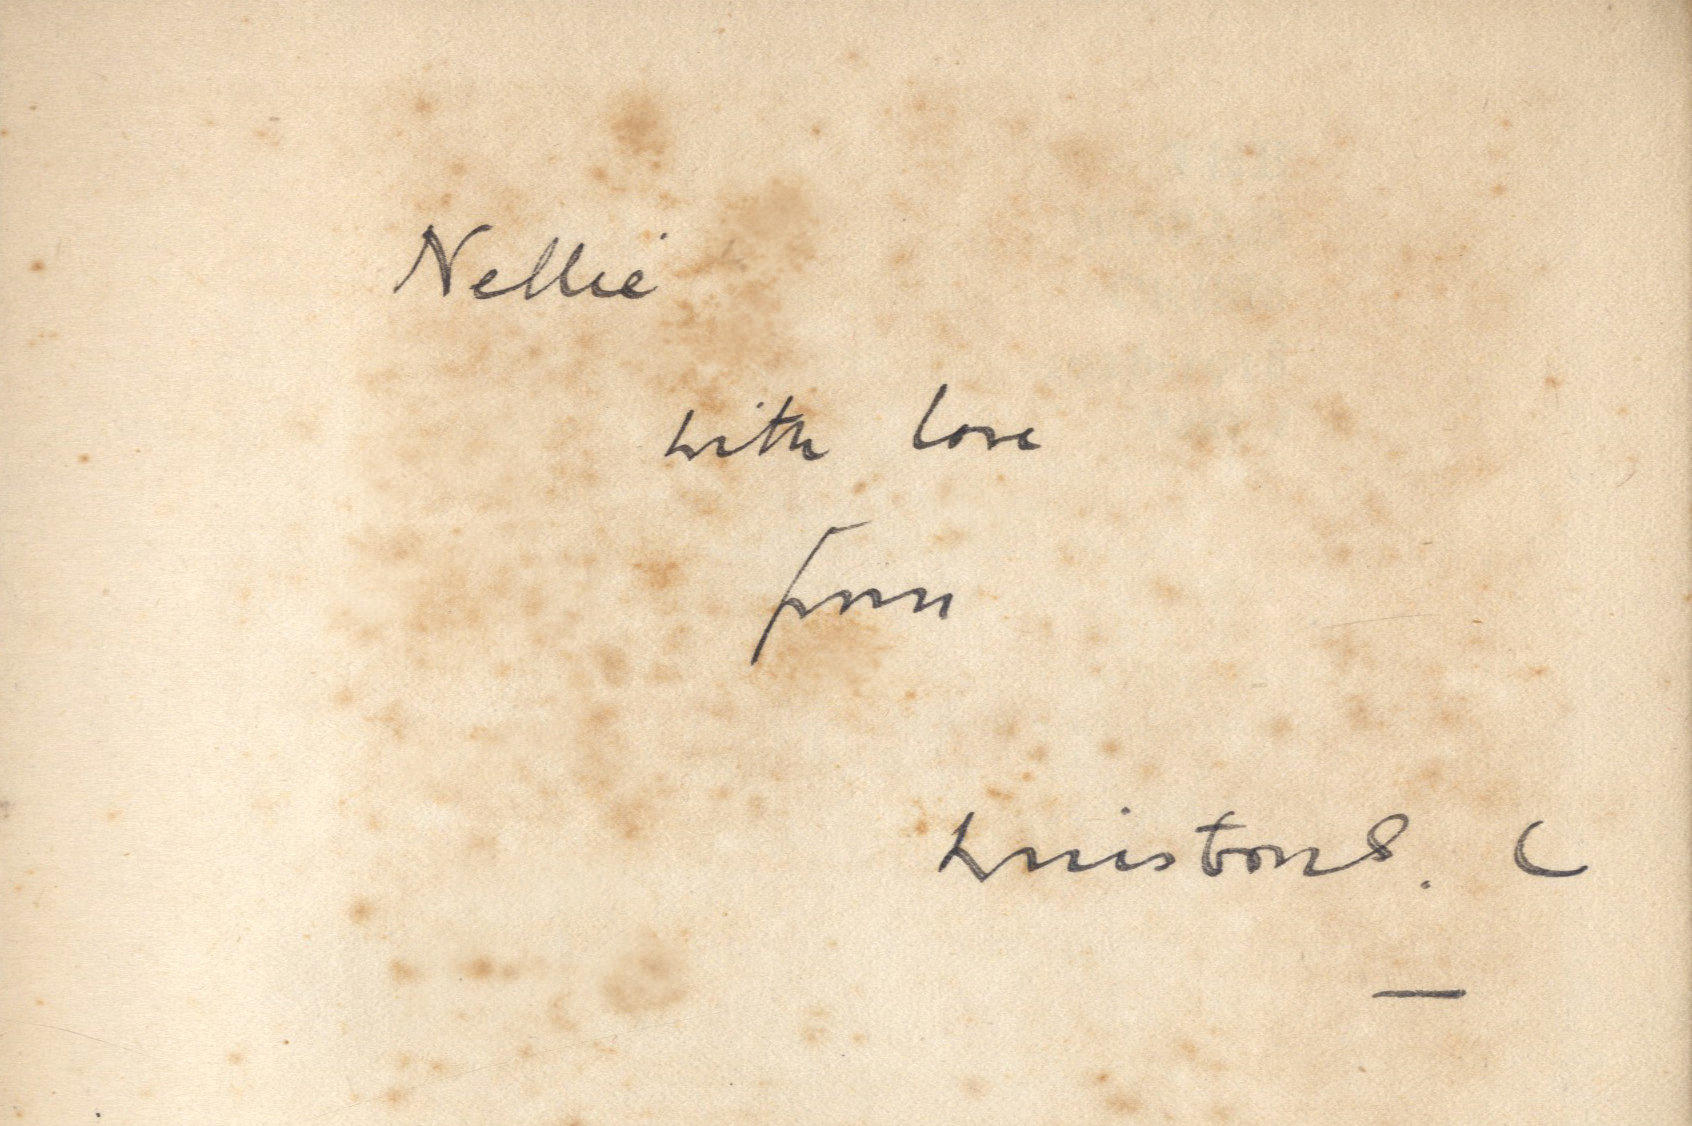 Nellie
with love
from
Winston S. C